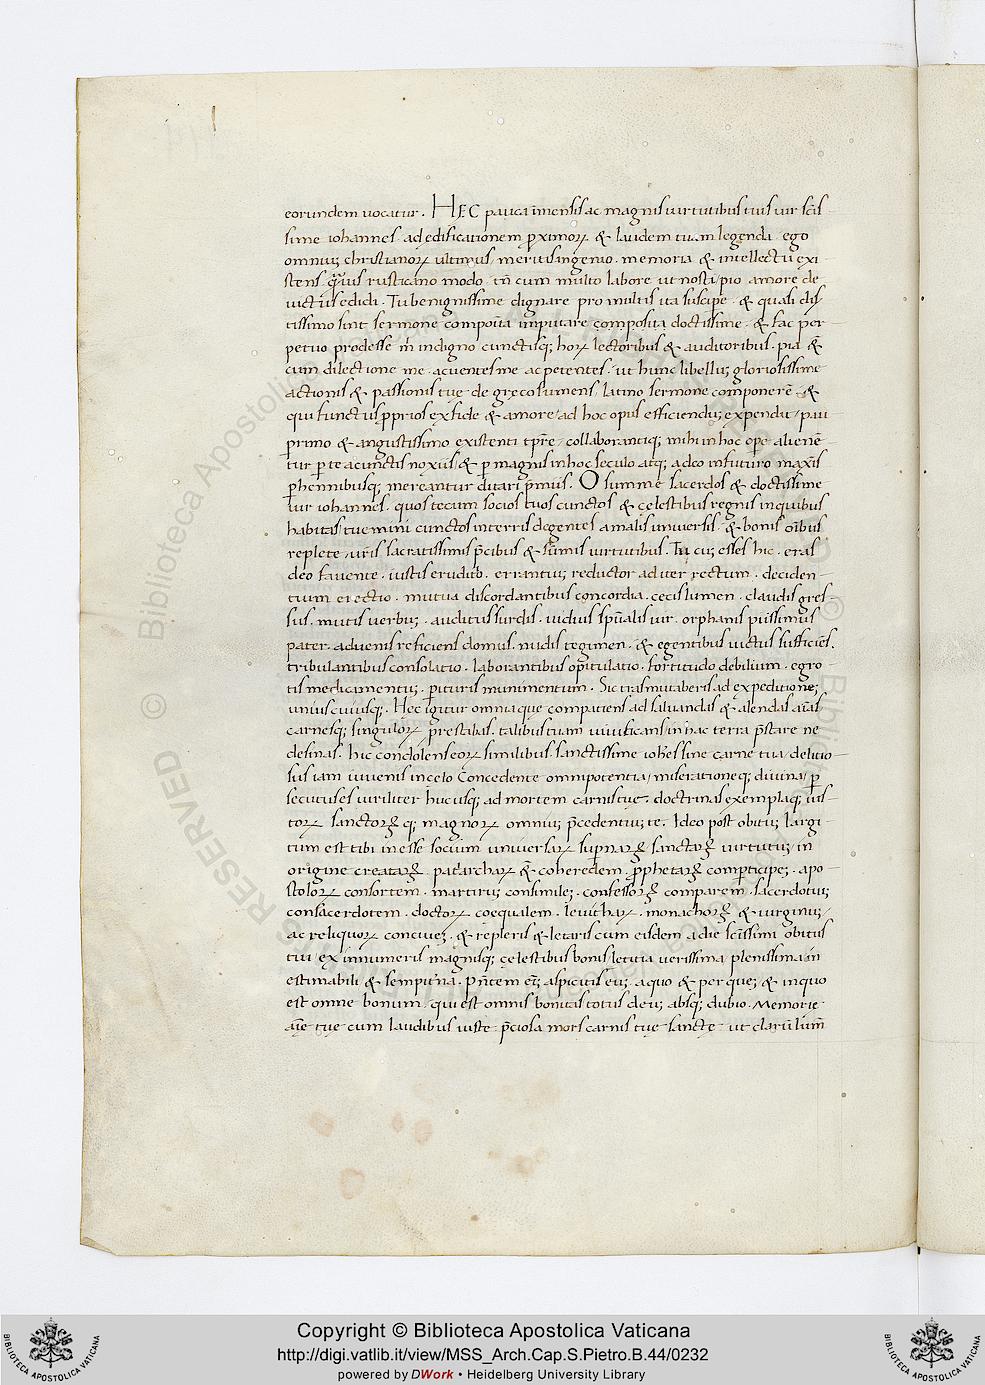 eorundem uocatur. HEC pauca īmensis ac magnis uirtutibus tuis uir scīs
sime iohannes. ad edificationem ꝓximoꝝ & laudem tuam legenda. ego
omniuꝫ christianoꝝ ultimus, meritis ingenio. memoria & intellectu exi
stens. quis rusticano modo. tn̄ cum multo labore ut nosti, pio amore de
uictus edidi. Tu benignissime dignare pro multis ita suscipe. & quasi dis
tissimo sint sermone composita imputare composita doctissime. & fac per
petuo prodesse m̄ indigno cunctisqꝫ hoꝝ lectoribus & auditoribus. pia &
cum dilectione me. ac uentes me ac petentes. ut hunc libelluꝫ gloriosissime
actionis & passionis tuę. de greco sumens, latino sermone componerē. &
qui functus ꝓprios ex fide & amore, ad hoc opus efficienduꝫ expendit, pau
primo & angustissimo existenti tp̄re, collaborantiqꝫ mihi in hoc ope. aliene
tur per te a cunctis noxiis, & ꝑ magnis in hoc seculo atqꝫ adeo in futuro maxīs
ꝑhennibusqꝫ mereantur ditari p̄miis. O summe sacerdos & doctissime
uir iohannes. quos tecum socios tuos cunctos & celestibus regnis in quibus
habitas, tue mini cunctos in terris degentes a malis uniuersis. & bonis oībus
replete, uiris sacratissimis p̄cibus & sūmis uirtutibus. Tu cuꝫ esses hic. eras
deo fauente. iustis eruditō. errantiuꝫ reductor ad iter rectum. deciden
tium erectio. mutua discordantibus concordia. cecis lumen. claudis gres
sus. mutis uerbuꝫ. auditus surdis. uiduis spūalis uir. orphanis piissimus
pater. aduenis reficiens domus. nudis tegimen. & egentibus uictus sufficiēs.
tribulantibus consolatio. laborantibus opitulatio. fortitudo debilium. egro
tis medicamentuꝫ. ꝑituris munimentum. Sic trasmutaberis ad expeditioneꝫ
uniuscuiusqꝫ. Hec igitur omnia que compatiens ad saluandas & alendas aīas
carnesqꝫ singuloꝝ prestabas. talibus tuam uiuificans in hac terra p̄stare ne
desinas. hic condolens eoꝝ similibus. sanctissime ioh̄es sine carne tua, delitio
sus iam iuuenis in celo. Concedente omnipotentia, miserationeqꝫ diuina, ꝑ
secutus es uiriliter hucusqꝫ ad mortem carnis tuę. doctrinas exemplaqꝫ iu̅s
toꝝ sanctoꝝ qꝫ magnoꝝ omniuꝫ p̄cedentiuꝫ te. Ideo post obituꝫ largi
tum est tibi in esse socium uniuersaꝝ supnaꝝ sanctaꝝ uirtutuꝫ, in
origine creataꝝ. patriarchaꝝ & coheredem. ꝓphetaꝝ comꝑticipeꝫ. apo
stoloꝝ consortem. martiruꝫ consimileꝫ. confessoꝝ comparem. sacerdotuꝫ
consacerdotem. doctoꝝ coequalem. leuitaꝝ. monachoꝝ & uirginuꝫ,
ac reliquoꝝ conciueꝫ. & repleris & letaris cum eisdem a die sc̄issimi obitus
tui, ex innumeris magnisqꝫ celestibus bonis letitia uerissima plenissima in
estimabili & sempit̄na. p̄ntem etiā aspicitis eius. a quo & per queꝫ & in quo
est omne bonum. qui est omnis bonitas totus deus absqꝫ dubio. Memorie
aūe tue cum laudibus iuste. p̄ciosa mors carnis tuę sanctę. ut clarū lum̄
Copyright © Biblioteca Apostolica Vaticana
http://digi.vatlib.it/view/MSS_Arch.Cap.S.Pietro.B.44/0232
powered by DWork • Heidelberg University Library